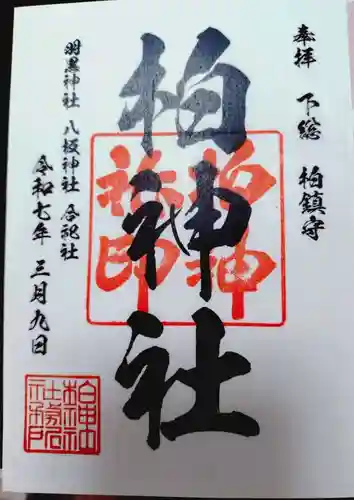 奉拝 下総 柏鎮守
柏神社
羽黒神社 八坂神社 合祀社
令和七年 三月九日
柏神
社印
柏神社
社務所